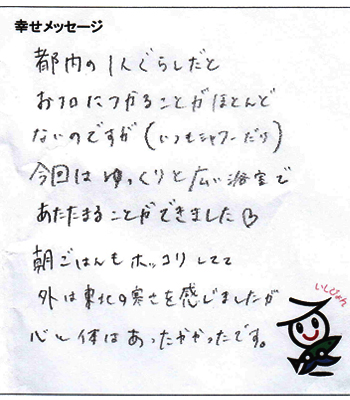 幸せメッセージ
都内の1人ぐらしだと
おフロにつかることがほとんど
ないのですが(いつもシャワーだけ)
今回はゆっくりと広い浴室で
あたたまることができました♡
朝ごはんもホッコリしてて
外は東北の寒さを感じましたが
心と体はあったかかったです。